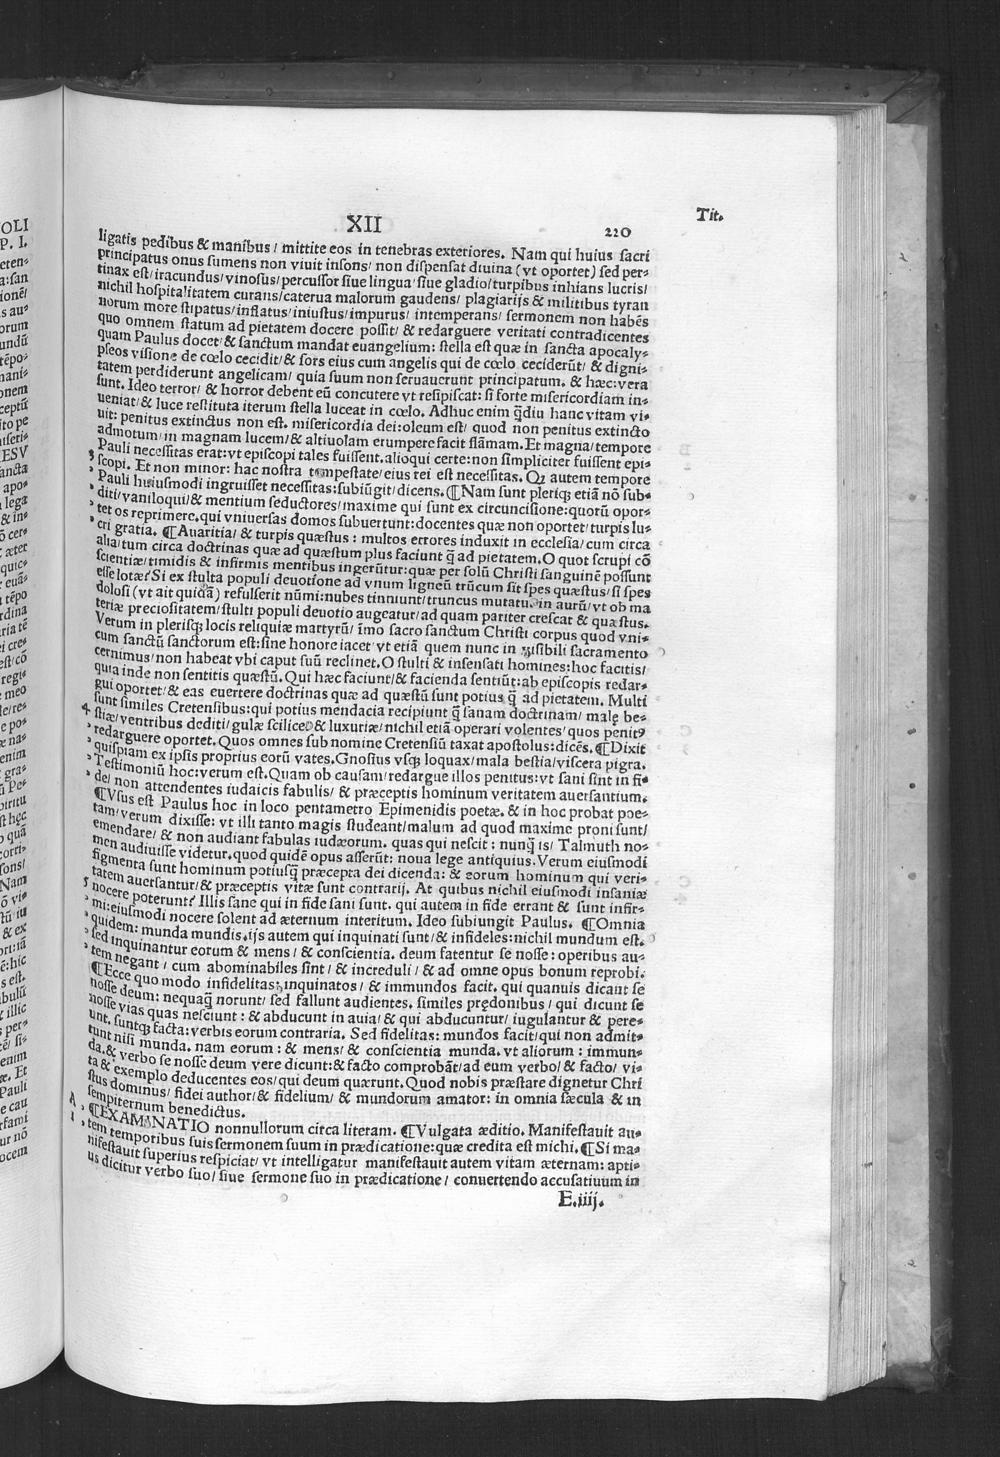 XII
Tit.
220
ligatis pedibus & manibus/ mittite eos in tenebras exteriores. Nam qui huius sacri
principatus onus sumens non viuit insons/ non dispensat diuina (vt oportet) sed per-
tinax est/ iracundus/ vinosus/ percussor siue lingua siue gladio/ turpibus inhians lucris/
nichil hospitalitatem curans/ caterua malorum gaudens/ plagiarijs & militibus tyran
norum more stipatus/ inflatus/ iniustus/ impurus/ intemperans/ sermonem non habēs
quo omnem statum ad pietatem docere possit/ & redarguere veritati contradicentes
quam Paulus docet/ & sanctum mandat euangelium: stella est quæ in sancta apocaly-
pseos visione de cœlo cecidit/ & sors eius cum angelis qui de cœlo ceciderūt/ & digni-
tatem perdiderunt angelicam/ quia suum non seruauerunt principatum. & hæc: vera
sunt. Ideo terror/ & horror debent eū concutere vt resipiscat: si forte misericordiam in-
ueniat/ & luce restituta iterum stella luceat in cœlo. Adhuc enim q̄diu hanc vitam vi-
uit: penitus extinctus non est. misericordia dei: oleum est/ quod non penitus extincto
admotum/ in magnam lucem/ & altiuolam erumpere facit flāmam. Et magna/ tempore
Pauli necessitas erat: vt episcopi tales fuissent. alioqui certe: non simpliciter fuissent epi-
3 scopi. Et non minor: hac nostra tempestate/ eius rei est necessitas. Qz autem tempore
Pauli huiusmodi ingruisset necessitas: subiūgit/ dicens. ¶Nam sunt pleriqz etiā nō sub-
diti/ vaniloqui/ & mentium seductores/ maxime qui sunt ex circuncisione: quorū opor-
tet os reprimere. qui vniuersas domos subuertunt: docentes quæ non oportet/ turpis lu-
cri gratia. ¶Auaritia/ & turpis quæstus: multos errores induxit in ecclesia/ cum circa
alia/ tum circa doctrinas quæ ad quæstum plus faciunt q̄ ad pietatem. O quot scrupi cō
scientiæ/ timidis & infirmis mentibus ingerūtur: quæ per solū Christi sanguinē possunt
esse lotæ? Si ex stulta populi deuotione ad vnum ligneū trūcum sit spes quæstus/ si spes
dolosi (vt ait quidā) refulserit nūmi: nubes tinniunt/ truncus mutatur in aurū/ vt ob ma
teriæ preciositatem/ stulti populi deuotio augeatur/ ad quam pariter crescat & quæstus.
Verum in plerisqz locis reliquiæ martyrū/ īmo sacro sanctum Christi corpus quod vni-
cum sanctū sanctorum est: sine honore iacet/ vt etiā quem nunc in visibili sacramento
cernimus/ non habeat vbi caput suū reclinet. O stulti & insensati homines: hoc facitis/
quia inde non sentitis quæstū. Qui hæc faciunt/ & facienda sentiūt: ab episcopis redar-
gui oportet/ & eas euertere doctrinas quæ ad quæstū sunt potius q̄ ad pietatem. Multi
sunt similes Cretensibus: qui potius mendacia recipiunt q̄ sanam doctrinam/ malę be-
4 stiæ/ ventribus dediti/ gulæ scilicet & luxuriæ/ nichil etiā operari volentes/ quos penitꝰ
redarguere oportet. Quos omnes sub nomine Cretensiū taxat apostolus: dicēs. ¶Dixit
quispiam ex ipsis proprius eorū vates. Gnosius vsqz loquax/ mala bestia/ viscera pigra.
Testimoniū hoc: verum est. Quam ob causam/ redargue illos penitus: vt sani sint in fi-
de/ non attendentes iudaicis fabulis/ & præceptis hominum veritatem auersantium.
¶Vsus est Paulus hoc in loco pentametro Epimenidis poetæ. & in hoc probat poe-
tam/ verum dixisse: vt illi tanto magis studeant/ malum ad quod maxime proni sunt/
emendare/ & non audiant fabulas iudæorum. quas qui nescit: nunq̄ is/ Talmuth no-
men audiuisse videtur. quod quidē opus asserūt: noua lege antiquius. Verum eiusmodi
figmenta sunt hominum potiusq̄ præcepta dei dicenda: & eorum hominum qui veri-
tatem auersantur/ & præceptis vitæ sunt contrarij. At quibus nichil eiusmodi insaniæ
5 nocere poterunt? Illis sane qui in fide sani sunt. qui autem in fide errant & sunt infir-
mi: eiusmodi nocere solent ad æternum interitum. Ideo subiungit Paulus. ¶Omnia
quidem: munda mundis. ijs autem qui inquinati sunt/ & infideles: nichil mundum est.
sed inquinantur eorum & mens/ & conscientia. deum fatentur se nosse: operibus au-
tem negant/ cum abominabiles sint/ & increduli/ & ad omne opus bonum reprobi.
¶Ecce quo modo infidelitas: inquinatos/ & immundos facit. qui quanuis dicant se
nosse deum: nequaq̄ norunt/ sed fallunt audientes. similes prędonibus/ qui dicunt se
nosse vias quas nesciunt: & abducunt in auia/ & qui abducuntur/ iugulantur & pere-
unt. suntqz facta: verbis eorum contraria. Sed fidelitas: mundos facit/ qui non admit-
tunt nisi munda. nam eorum: & mens/ & conscientia munda. vt aliorum: immun-
da. & verbo se nosse deum vere dicunt: & facto comprobāt/ ad eum verbo/ & facto/ vi-
ta & exemplo deducentes eos/ qui deum quærunt. Quod nobis præstare dignetur Chri
stus dominus/ fidei author/ & fidelium/ & mundorum amator: in omnia sæcula & in
sempiternum benedictus.
A ¶EXAMINATIO nonnullorum circa literam. ¶Vulgata æditio. Manifestauit au-
1 tem temporibus suis sermonem suum in prædicatione: quæ credita est michi. ¶Si ma-
nifestauit superius respiciat/ vt intelligatur manifestauit autem vitam æternam: apti-
us dicitur verbo suo/ siue sermone suo in prædicatione/ conuertendo accusatiuum in
E.iiij.